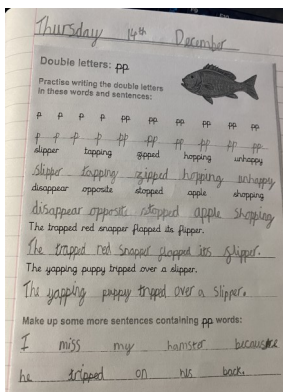 Thursday 14th December
Double letters: pp
Practise writing the double letters
in these words and sentences:
p p p p pp pp pp pp pp
p p p p pp pp pp pp pp
slipper tapping zipped hopping unhappy
slipper tapping zipped hopping unhappy
disappear opposite stopped apple shopping
disappear opposite stopped apple shopping
The trapped red snapper flapped its flipper.
The trapped red snapper flapped its flipper.
The yapping puppy tripped over a slipper.
The yapping puppy tripped over a slipper.
Make up some more sentences containing pp words:
I miss my hamster because
he tripped on his back.